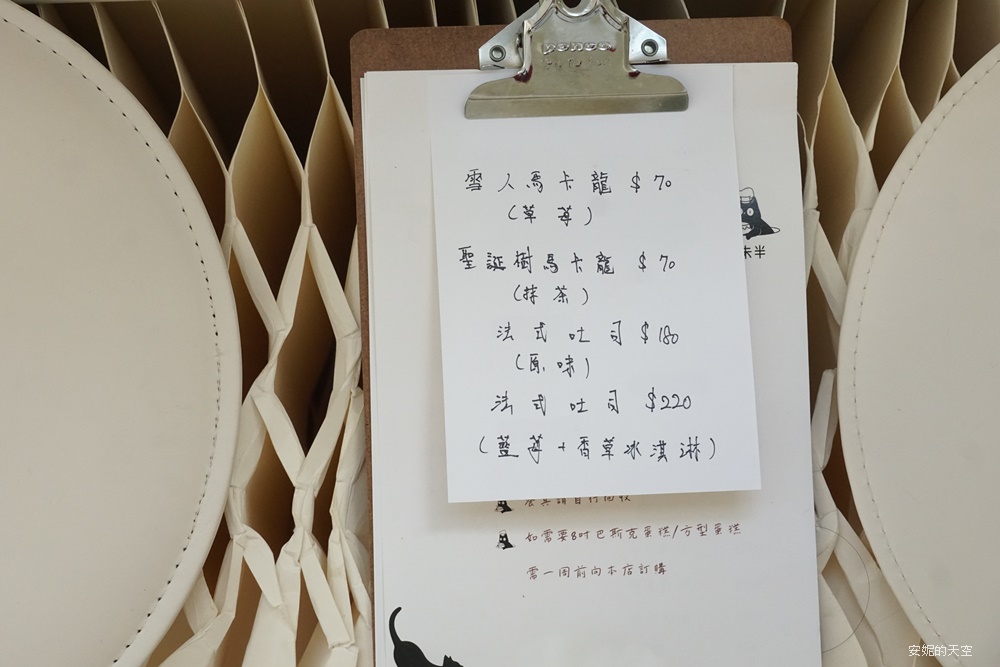 雪人馬卡龍 $70
(草莓)
聖誕樹馬卡龍 $70
(抹茶)
法式吐司 $180
(原味)
法式吐司 $220
(藍莓+香草冰淇淋)
未半
如需要8吋巴斯克蛋糕/方型蛋糕
需一周前向本店訂購
安妮的天空